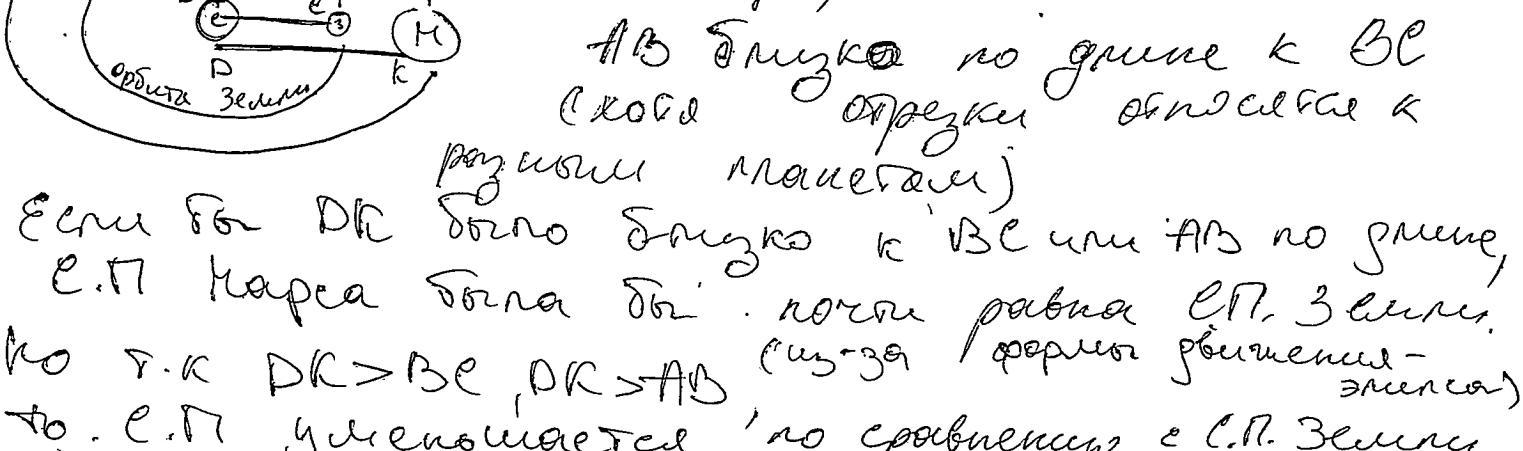 С З М
D К
орбита Земли
АВ близко по длине к ВС
(хотя отрезки относятся к
разным планетам)
Если бы DK было близко к ВС или АВ по длине,
С.П Марса была бы почти равна С.П. Земли.
Но т.к DK>BC, DK>AB (из-за формы движения-
элипса)
то. С.П уменьшается по сравнению с С.П. Земли